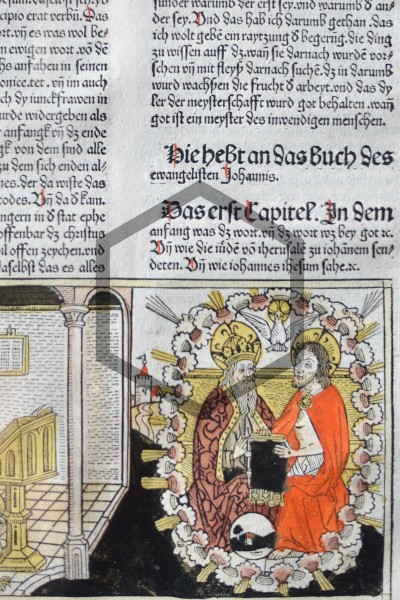 cipio erat verbū. Das
ort.vn̄ es was wol be-
n ewigen wort.vō dē
hs anfahen in seinen
vn̄ im auch
ch dy iunckfrawen in
urde widergeben als
anfangk vn̄ dz ende
gk von dem sind alle
zu dem sich enden al-
nes.der da wiste das
odes. Vn̄ da ď kam.
ngern in ď stat ephe
offenbar dz christus
il offen zeychen.vnd
daselbst das es alles
sunder warumb der erst sey.vnd warumb ď an-
der sey. Vnd das hab ich darumb gethan.das
ich wolt geben ein raytzung ď begerung.die ding
zu wissen auff dz.wañ sie darnach wurdē vor-
schen vn̄ mit fleyß darnach suchē.dz in darumb
wurd wachsen die frucht ď arbeyt.vnd das dy
ler der meysterschafft wurd got behalten.wañ
got ist ein meyster des inwendigen menschen.
Hie hebt an das Buch des
ewangelisten Johannis.
Das erst Capitel. In dem
anfang was dz wort.vn̄ dz wort wz bey got ꝛc.
Vn̄ wie die iudē vō iherusalē zu iohānem sen-
deten. Vn̄ wie iohannes ihesum sahe.ꝛc.